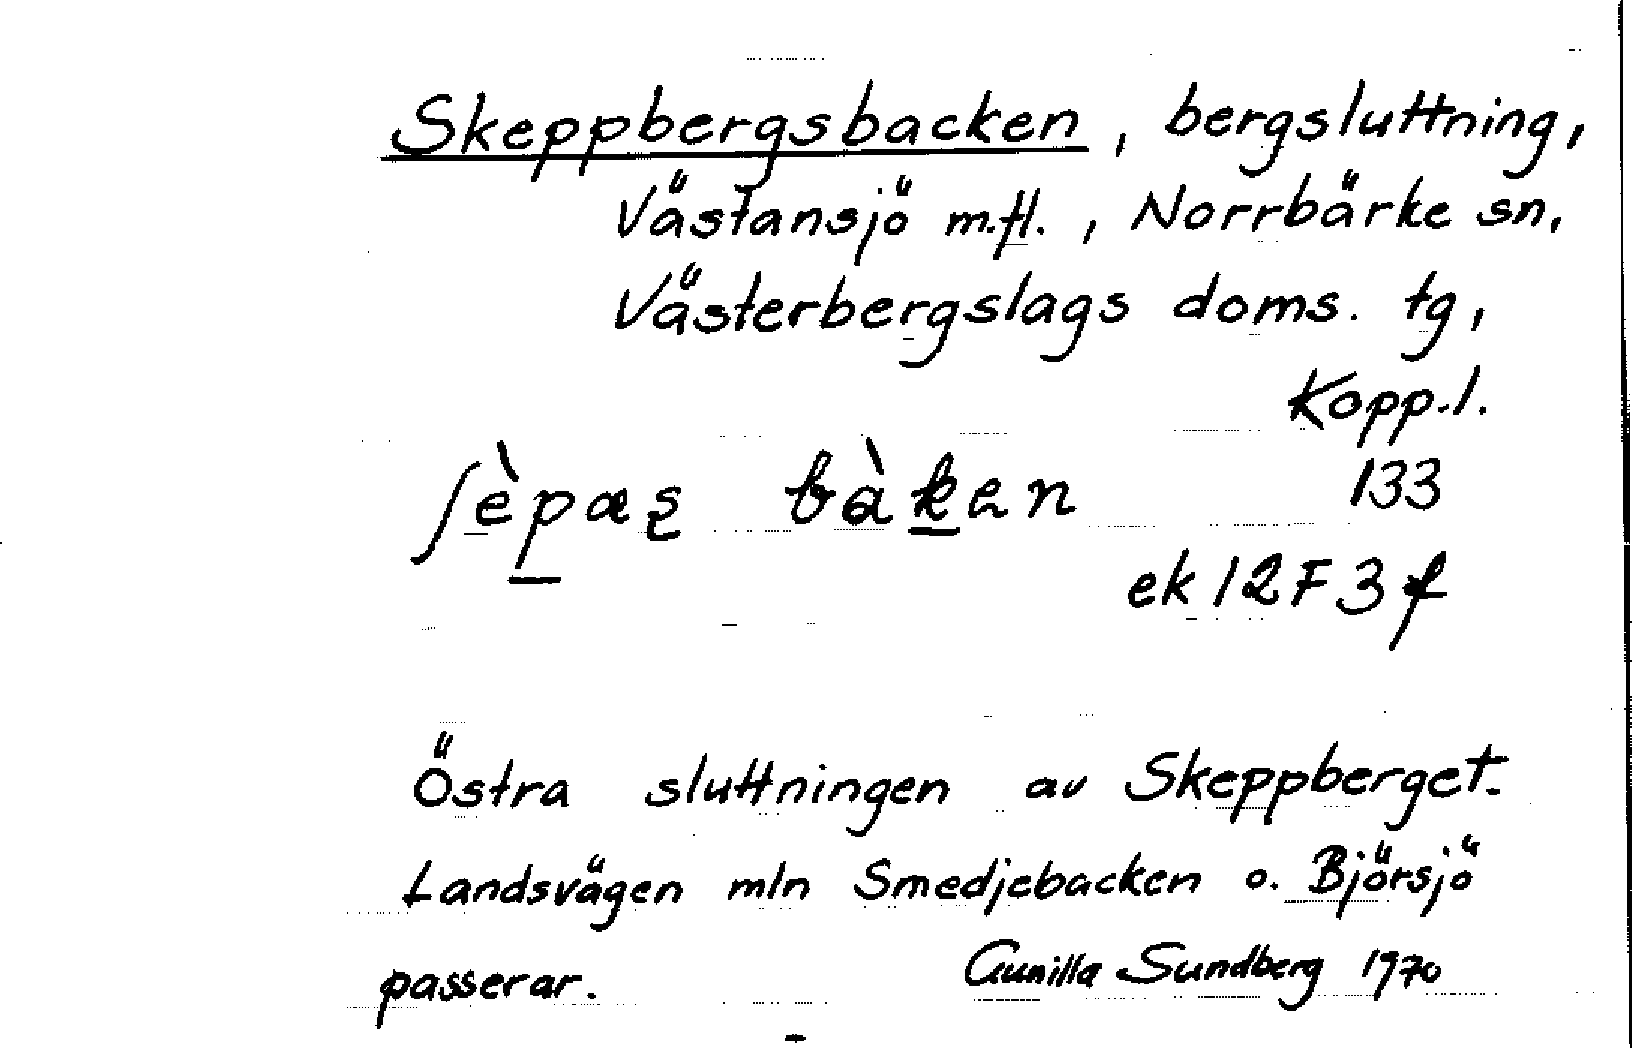 Skeppbergsbacken, bergsluttning,
Västansjö m.fl., Norrbärke sn,
Västerbergslags doms. tg,
Kopp.l.
ʃèpæʂ bàken 133
ek 12F3f
Östra sluttningen av Skeppberget.
Landsvägen mln Smedjebacken o. Björsjö
passerar. Gunilla Sundberg 1970